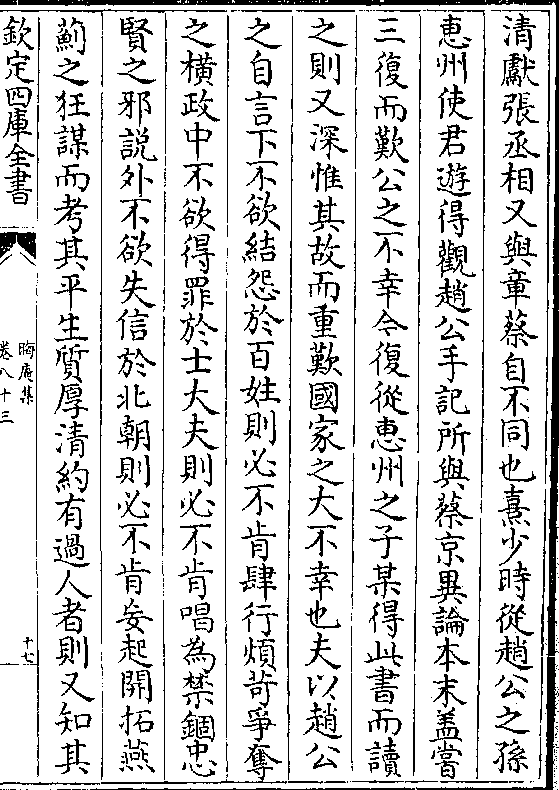 清獻張丞相又與章蔡自不同也熹少時從趙公之孫
惠州使君遊得觀趙公手記所與蔡京異論本末盖嘗
三復而歎公之不幸今復從惠州之子某得此書而讀
之則又深惟其故而重歎國家之大不幸也夫以趙公
之自言下不欲結怨於百姓則必不肯肆行煩苛爭奪
之橫政中不欲得罪於士大夫則必不肯唱為禁錮忠
賢之邪説外不欲失信於北朝則必不肯妄起開拓燕
薊之狂謀而考其平生質厚清約有過人者則又知其
欽定四庫全書
晦庵集
卷八十三
十七